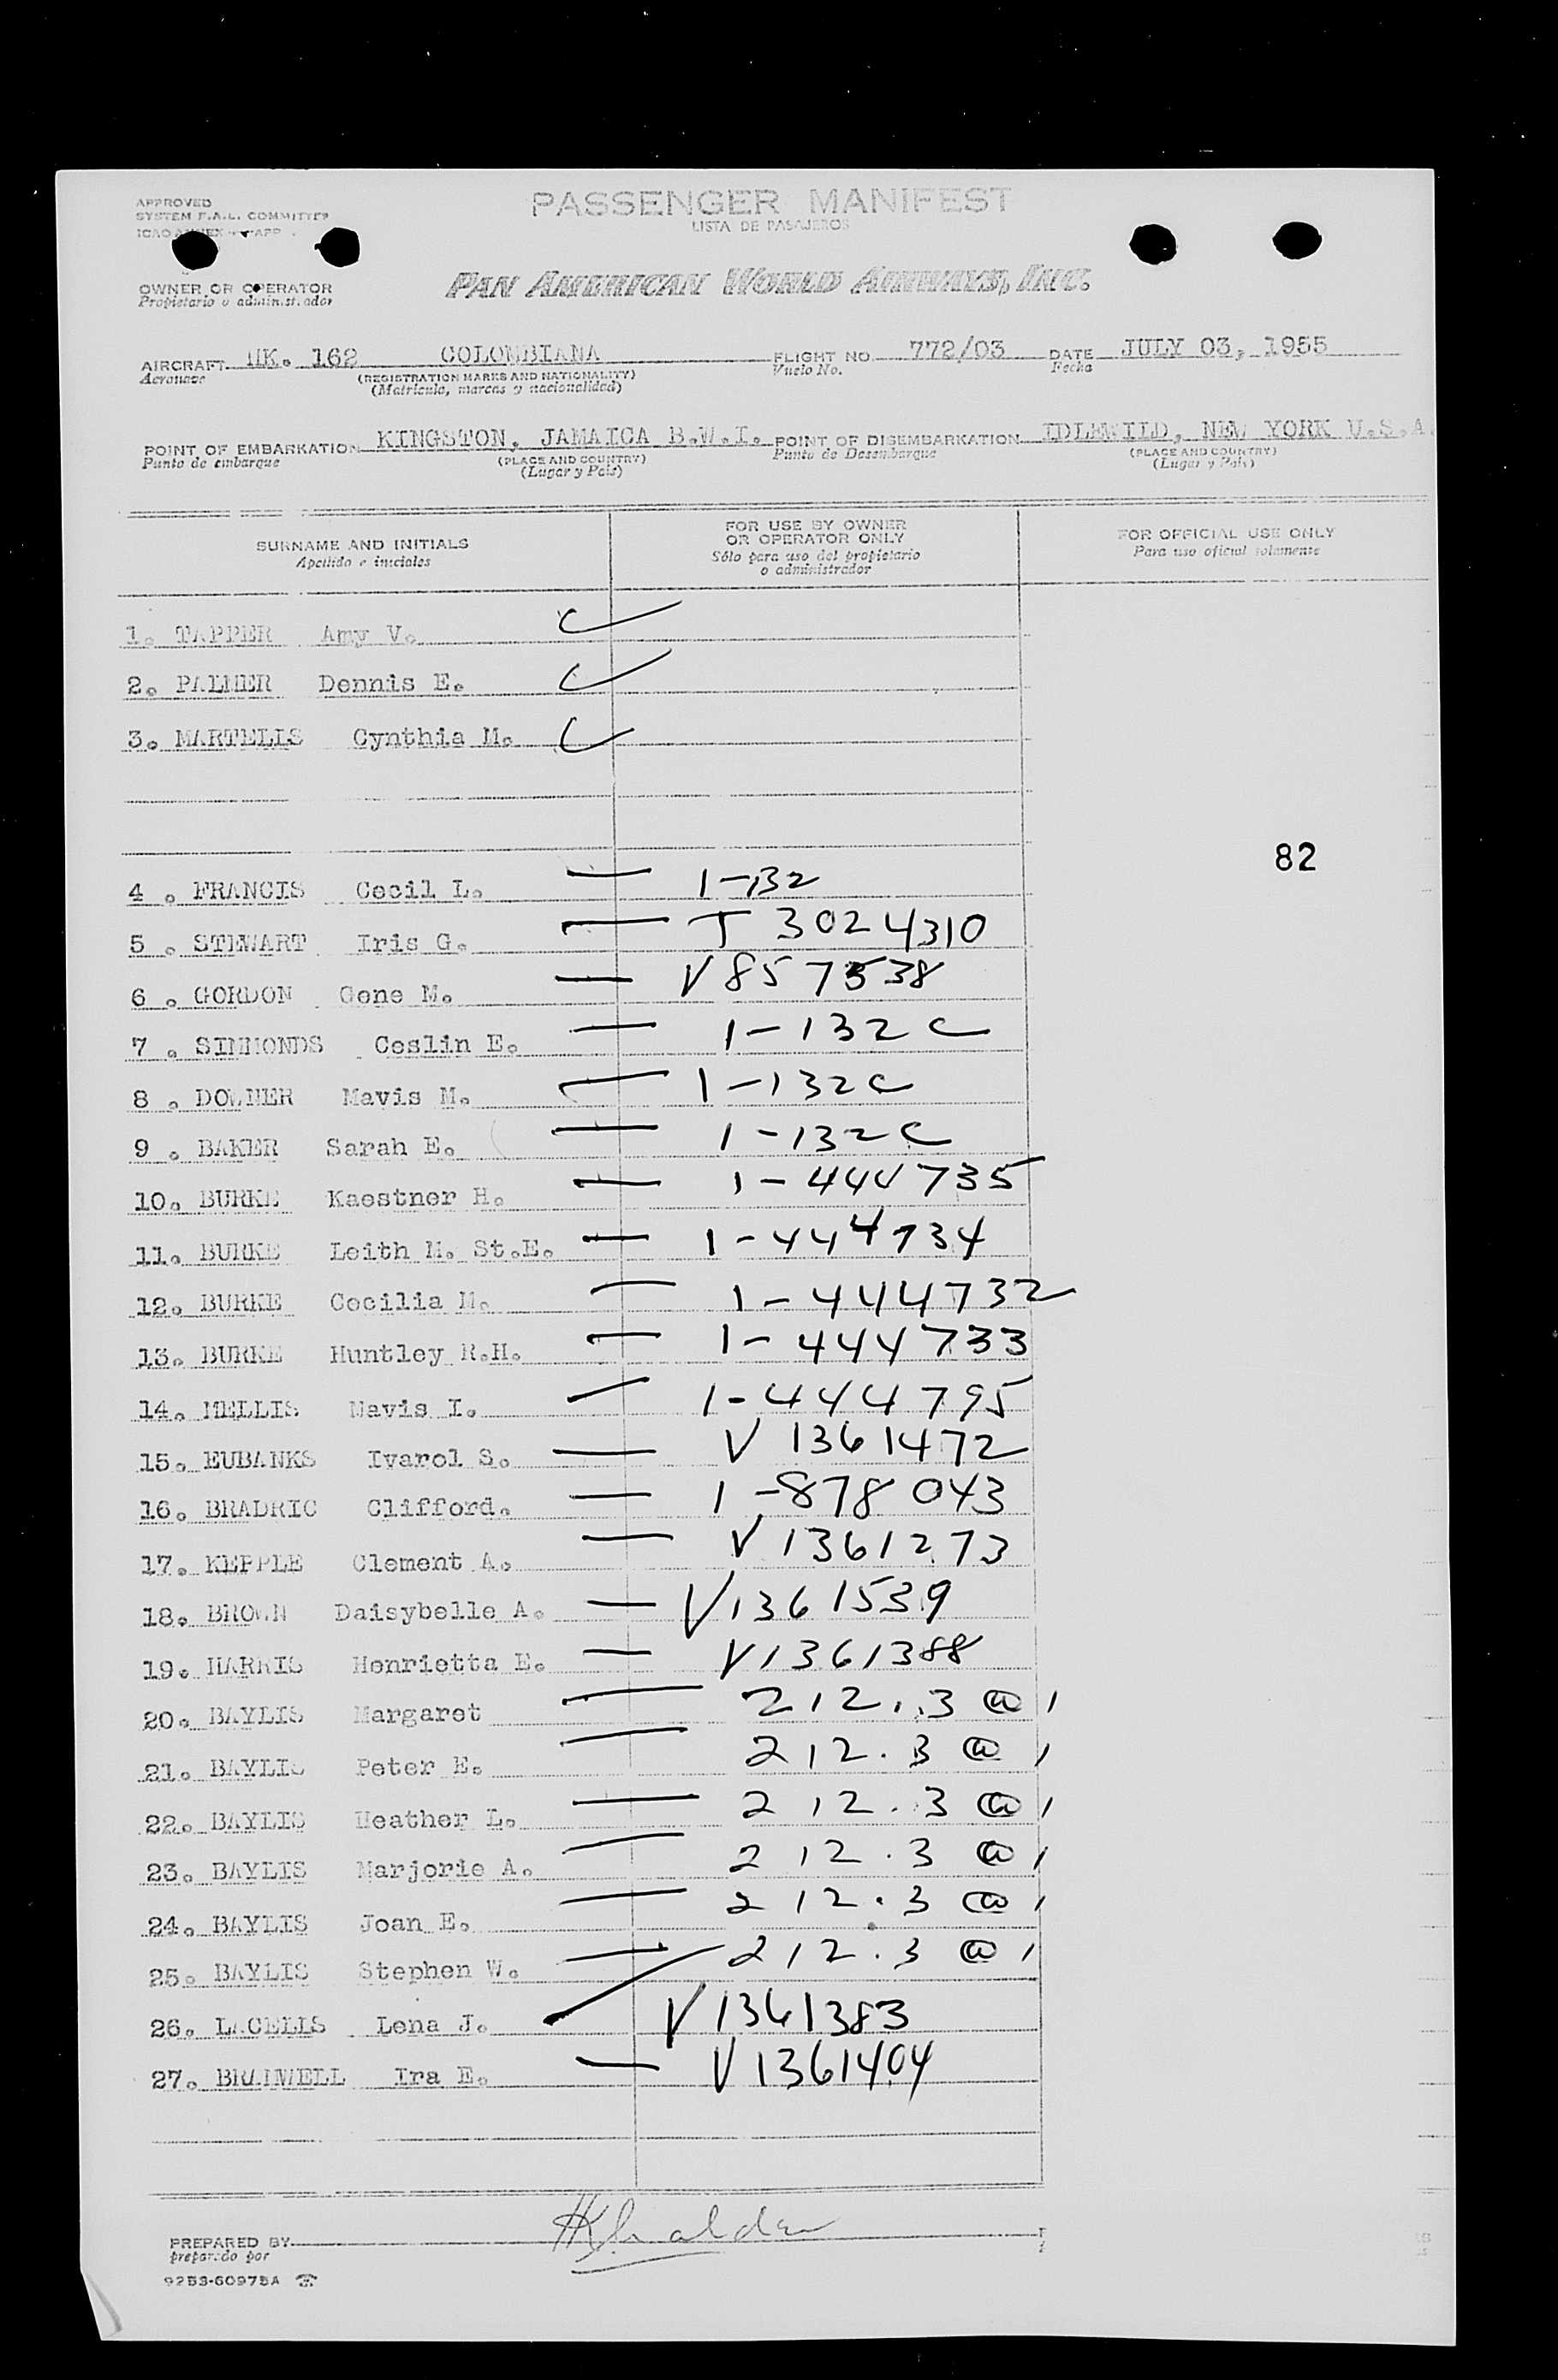 APPROVED
SYSTEM F.A.L. COMMITTEE
PASSENGER MANIFEST
LISTA DE PASAJEROS
OWNER OR OPERATOR
Propietario o administrador
PAN AMERICAN WORLD AIRWAYS, INC.
AIRCRAFT HK. 162 COLOMBIANA FLIGHT NO. 772/03 DATE JULY 03, 1955
Aeronave (REGISTRATION MARKS AND NATIONALITY) Vuelo No. Fecha
(Matricula, marcas y nacionalidad)
POINT OF EMBARKATION KINGSTON, JAMAICA B.W.I. POINT OF DISEMBARKATION IDLEWILD, NEW YORK U.S.A.
Punto de embarque (PLACE AND COUNTRY) Punto de Desembarque (PLACE AND COUNTRY)
(Lugar y Pais) (Lugar y Pais)
SURNAME AND INITIALS FOR USE BY OWNER OR OPERATOR ONLY FOR OFFICIAL USE ONLY
Apellido e iniciales Sólo para uso del propietario o administrador Para uso oficial solamente
1. TAPPER Amy V.
2. PALMER Dennis E.
3. MARTELLS Cynthia M.
82
4 . FRANCIS Cecil L. 1-132
5 . STEWART Iris G. T 3024310
6 . GORDON Gene M. V 857538
7 . SIMMONDS Ceslin E. 1-132 C
8 . DOWNER Mavis M. 1-132C
9 . BAKER Sarah E. 1-132 C
10. BURKE Kaestner H. 1-444735
11. BURKE Leith M. St.E. 1-444734
12. BURKE Cecilia M. 1-444732
13. BURKE Huntley R.H. 1-444733
14. MELLIS Mavis I. 1-444795
15. EUBANKS Ivarol S. V 1361472
16. BRADRIC Clifford. 1-878043
17. KEPPLE Clement A. V 1361273
18. BROWN Daisybelle A. V1361539
19. HARRIS Henrietta E. V1361388
20. BAYLIS Margaret 212.3 @ 1
21. BAYLIS Peter E. 212.3 @ 1
22. BAYLIS Heather L. 212.3 @ 1
23. BAYLIS Marjorie A. 212.3 @ 1
24. BAYLIS Joan E. 212.3 @ 1
25. BAYLIS Stephen W. 212.3 @ 1
26. LACELLS Lena J. V 1361383
27. BRAIMWELL Ira E. V 1361404
PREPARED BY
preparado por
9253-60975A